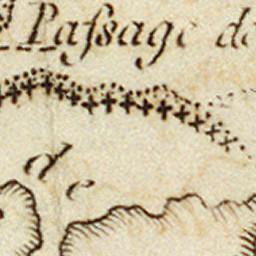 Paſsage de
de